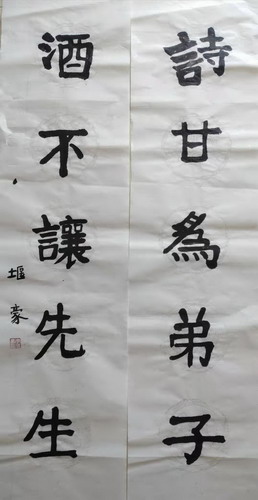 詩甘為弟子
酒不讓先生
堰豪